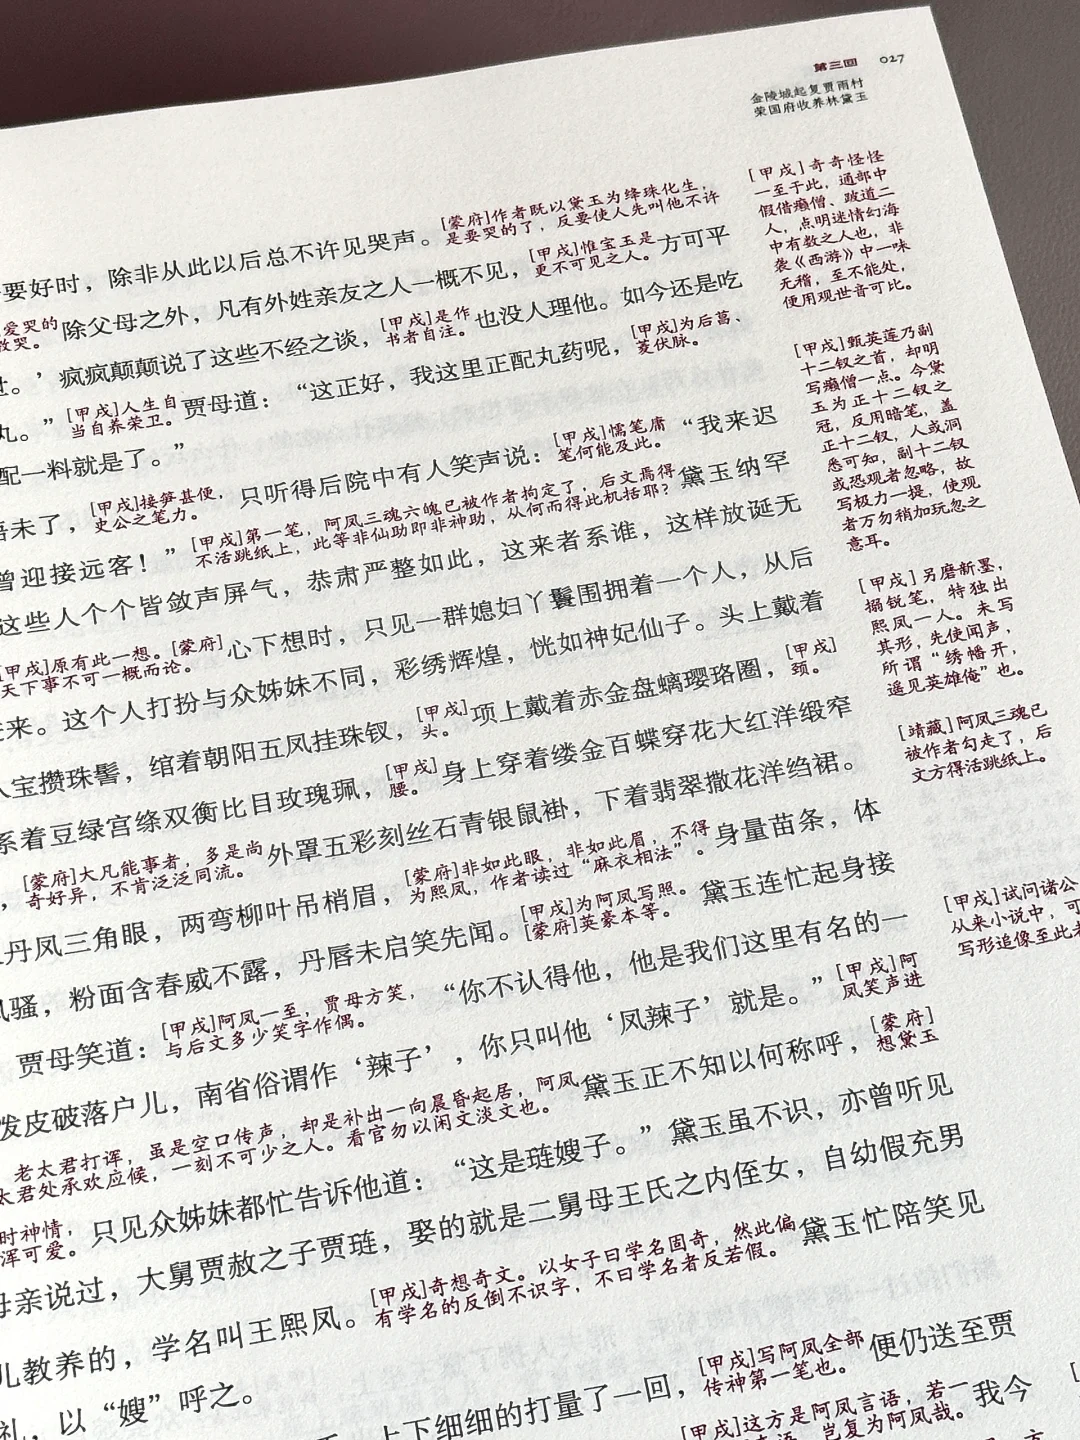 第三回 027
金陵城起复贾雨村
荣国府收养林黛玉
要好时，除非从此以后总不许见哭声。[蒙府]作者既以黛玉为绛珠化生，
是要哭的了，反要使人先叫他不许
爱哭的
教哭。
除父母之外，凡有外姓亲友之人一概不见，[甲戌]惟宝玉是
更不可见之人。
方可平
世。’疯疯颠颠说了这些不经之谈，[甲戌]是作
书者自注。
也没人理他。如今还是吃
丸。”[甲戌]人生自
当自养荣卫。
贾母道：“这正好，我这里正配丸药呢，[甲戌]为后菖、
菱伏脉。
配一料就是了。”
未了，[甲戌]接笋甚便，
史公之笔力。
只听得后院中有人笑声说：[甲戌]懦笔庸
笔何能及此。
“我来迟
曾迎接远客！”[甲戌]第一笔，阿凤三魂六魄已被作者拘定了，后文焉得
不活跳纸上，此等非仙助即非神助，从何而得此机括耶？
黛玉纳罕
这些人个个皆敛声屏气，恭肃严整如此，这来者系谁，这样放诞无
[甲戌]原有此一想。[蒙府]
天下事不可一概而论。
心下想时，只见一群媳妇丫鬟围拥着一个人，从后
进来。这个人打扮与众姊妹不同，彩绣辉煌，恍如神妃仙子。头上戴着
八宝攒珠髻，绾着朝阳五凤挂珠钗，[甲戌]
头。
项上戴着赤金盘螭璎珞圈，[甲戌]
颈。
系着豆绿宫绦双衡比目玫瑰珮，[甲戌]
腰。
身上穿着缕金百蝶穿花大红洋缎窄
，[蒙府]大凡能事者，多是尚
奇好异，不肯泛泛同流。
外罩五彩刻丝石青银鼠褂，下着翡翠撒花洋绉裙。
丹凤三角眼，两弯柳叶吊梢眉，[蒙府]非如此眼，非如此眉，不得
为熙凤，作者读过“麻衣相法”。
身量苗条，体
风骚，粉面含春威不露，丹唇未启笑先闻。[甲戌]为阿凤写照。
[蒙府]英豪本等。
黛玉连忙起身接
贾母笑道：[甲戌]阿凤一至，贾母方笑，
与后文多少笑字作偶。
“你不认得他，他是我们这里有名的一
泼皮破落户儿，南省俗谓作‘辣子’，你只叫他‘凤辣子’就是。”[甲戌]阿
凤笑声进
老太君打诨，虽是空口传声，却是补出一向晨昏起居，阿凤
太君处承欢应候，一刻不可少之人。看官勿以闲文淡文也。
黛玉正不知以何称呼，[蒙府]
想黛玉
时神情，
浑可爱。
只见众姊妹都忙告诉他道：“这是琏嫂子。”黛玉虽不识，亦曾听见
母亲说过，大舅贾赦之子贾琏，娶的就是二舅母王氏之内侄女，自幼假充男
儿教养的，学名叫王熙凤。[甲戌]奇想奇文。以女子曰学名固奇，然此偏
有学名的反倒不识字，不曰学名者反若假。
黛玉忙陪笑见
礼，以“嫂”呼之。
上下细细的打量了一回，[甲戌]写阿凤全部
传神第一笔也。
便仍送至贾
[甲戌]这方是阿凤言语，若一
岂复为阿凤哉。
我今
[甲戌]奇奇怪怪
一至于此，通部中
假借癞僧、跛道二
人，点明迷情幻海
中有数之人也，非
袭《西游》中一味
无稽，至不能处，
便用观世音可比。
[甲戌]甄英莲乃副
十二钗之首，却明
写癞僧一点。今黛
玉为正十二钗之
冠，反用暗笔，盖
正十二钗，人或洞
悉可知，副十二钗
或恐观者忽略，故
写极力一提，使观
者万勿稍加玩忽之
意耳。
[甲戌]另磨新墨，
搦锐笔，特独出
熙凤一人。未写
其形，先使闻声，
所谓“绣幡开，
遥见英雄俺”也。
[靖藏]阿凤三魂已
被作者勾走了，后
文方得活跳纸上。
[甲戌]试问诸公
从来小说中，可
写形追像至此者